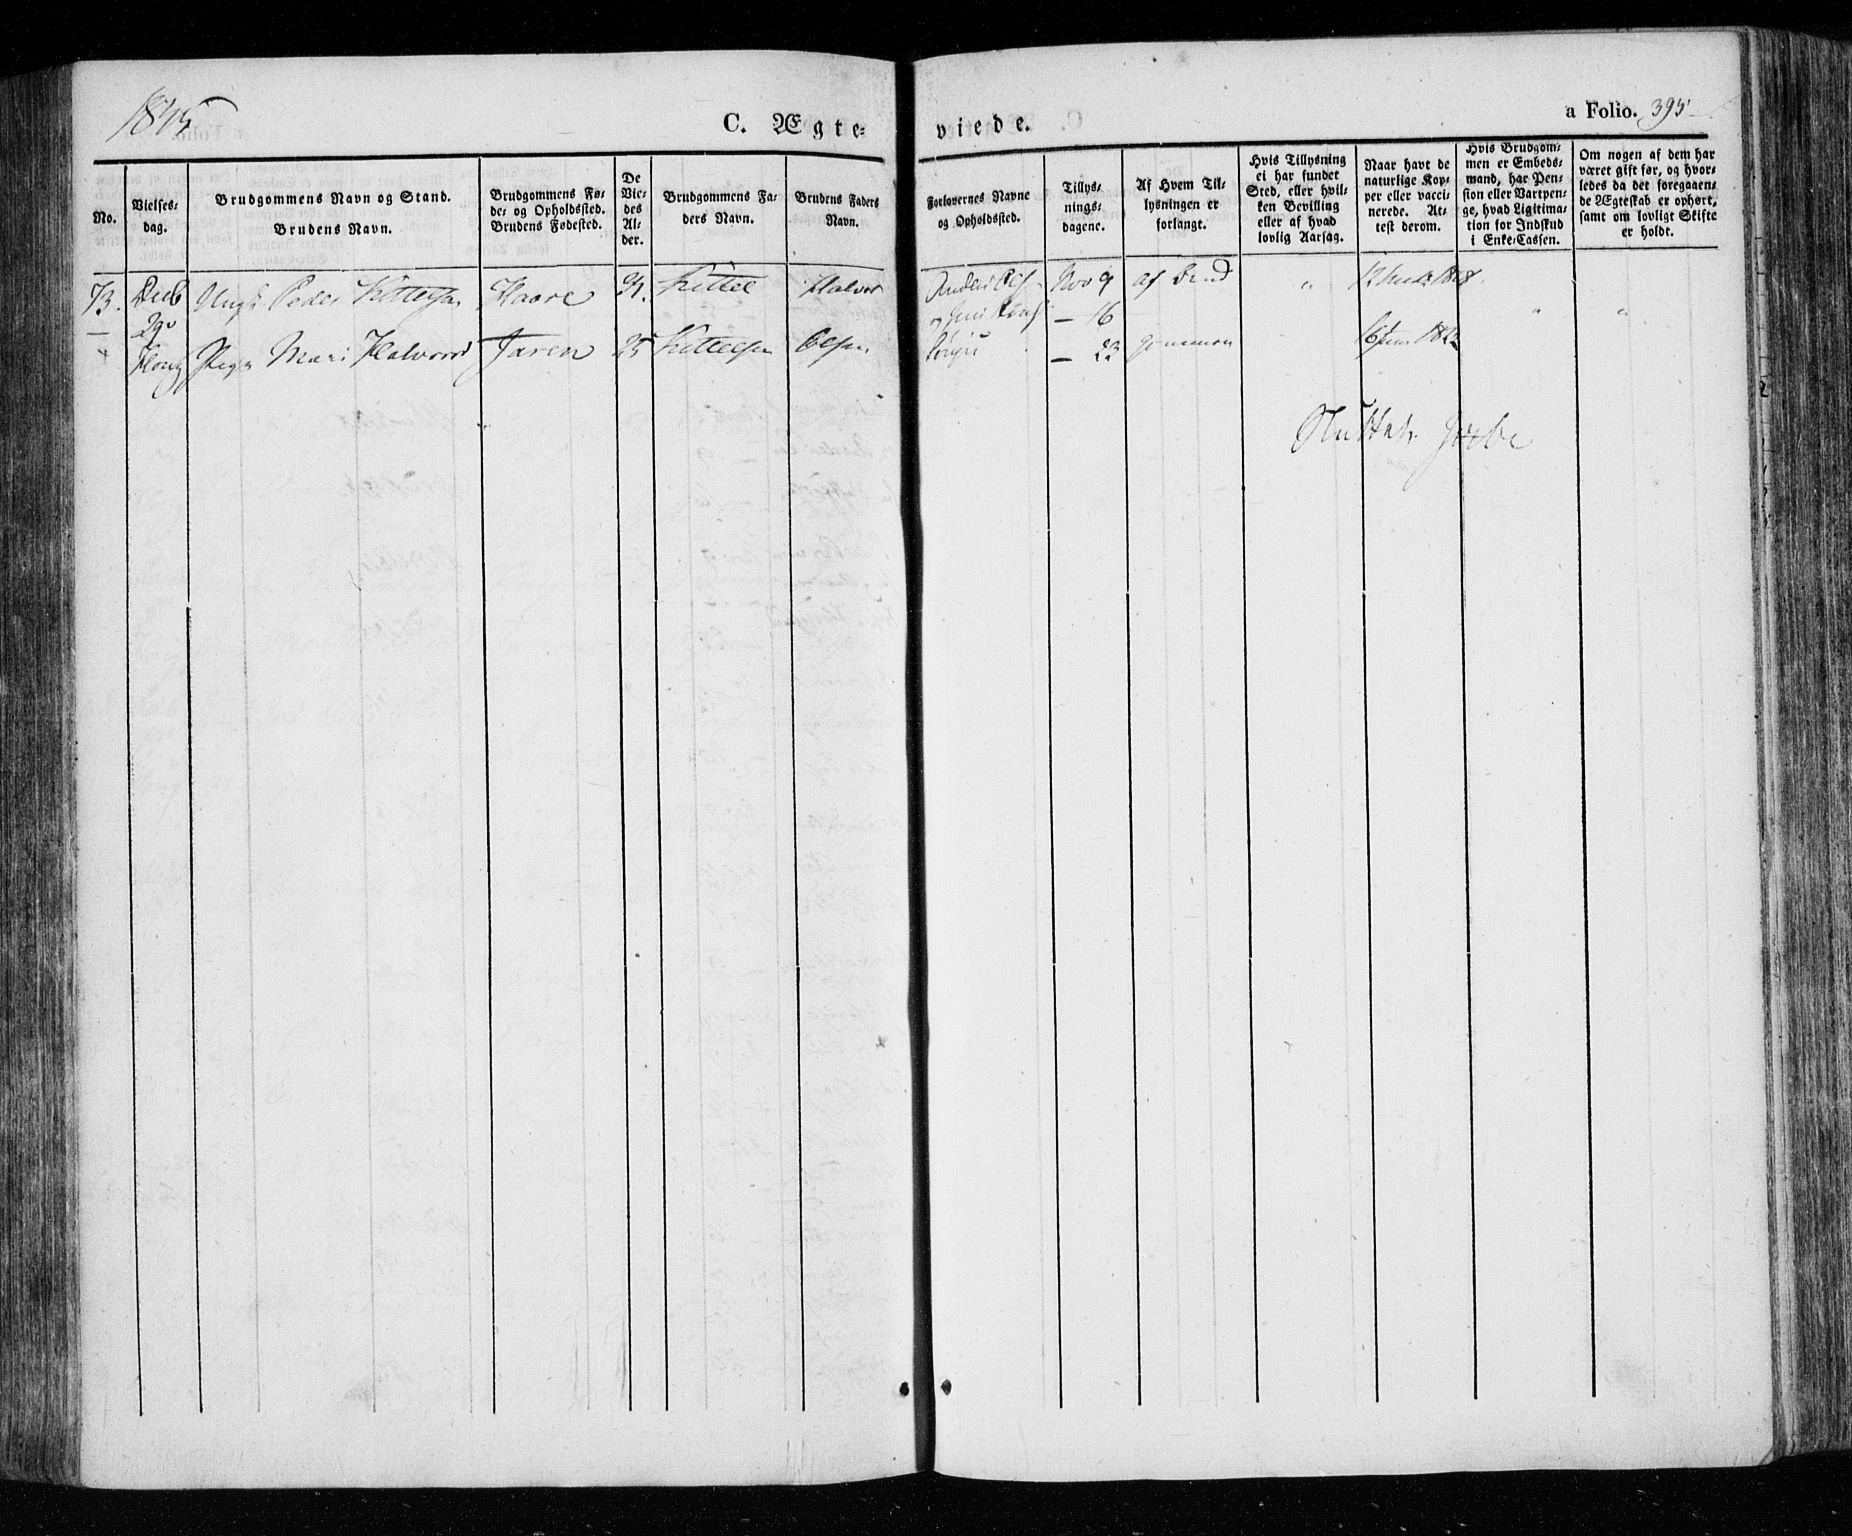 1845
C. Ægte-
viede.
a Folio. 395
No.
Vielses-
dag.
Brudgommens Navn og Stand.
Brudens Navn.
Brudgommens Fø-
de- og Opholdssted.
Brudens Fødested.
De
Vie-
des
Al-
der.
Brudgommens Fa-
ders Navn.
Brudens Faders
Navn.
Forlovernes Navne
og Opholdssted.
Tillys-
nings-
dagene.
Af Hvem Til-
lysningen er
forlangt.
Hvis Tillysning
ei har fundet
Sted, eller hvil-
ken Bevilling
eller af hvad
lovlig Aarsag.
Naar havt de
naturlige Kop-
per eller vacci-
nerede. At-
test derom.
Hvis Brudgom-
men er Embeds-
mand, har Pen-
sion eller Vartpen-
ge, hvad Ligitima-
tion for Indskud
i Enke-Cassen.
Om nogen af dem har
været gift før, og hvor-
ledes da det foregaaen-
de Ægteskab er ophørt,
samt om lovligt Skifte
er holdt.
73. Peder Kittelsen Haare Kittel Halvor
Mari Halvorsd Jaren 25 Kittelsen Olsen
Nov 9 af Brud
— 16
— 23 gommen